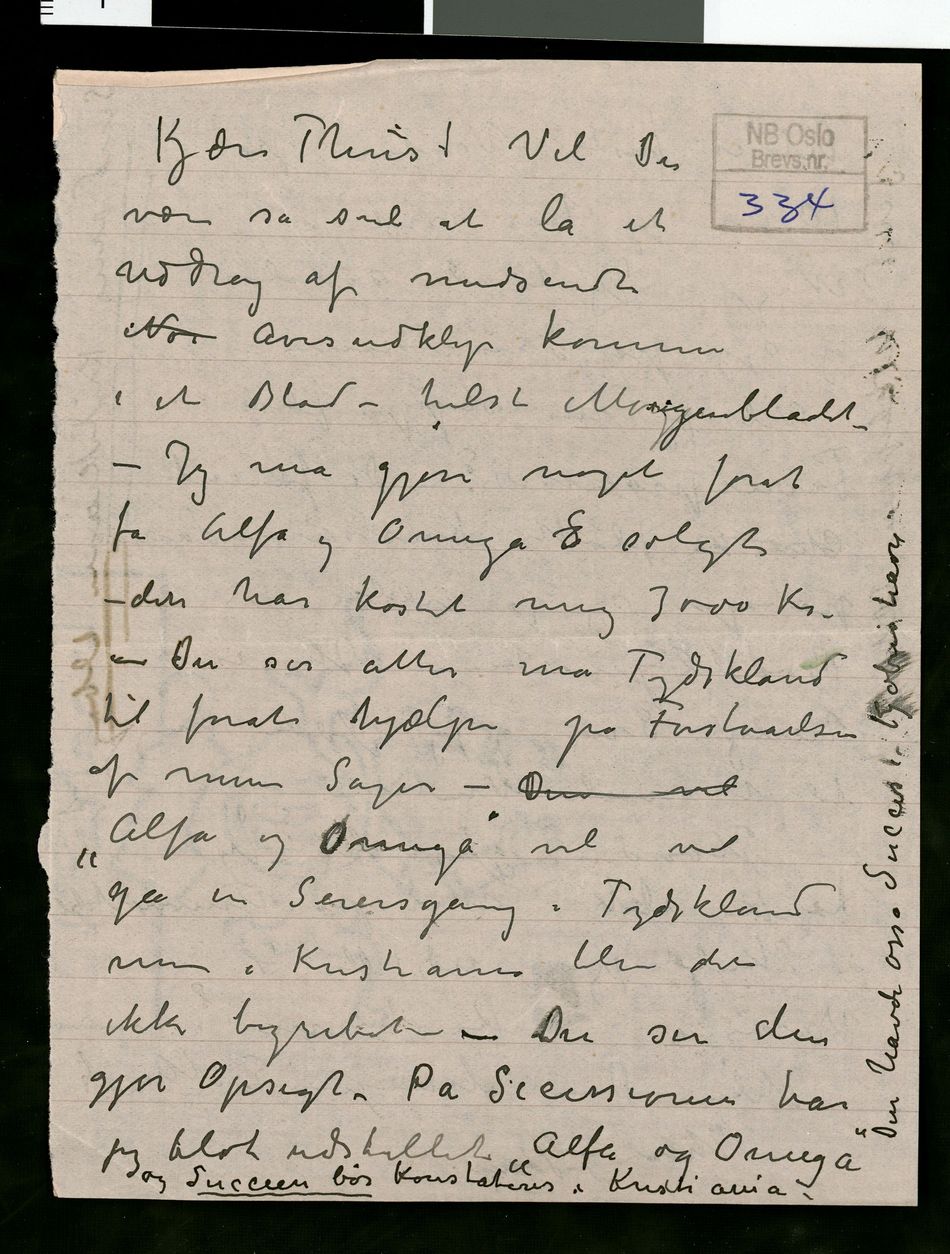 Kjære Thiis! Vil De
NB Oslo
Brevs.nr.
334
være så snil at la et
uddrag af medsendte
Avisudklip komme
i et Blad – helst Morgenbladet –
– Jeg må gjøre noget forat
få Alfa og Omega solgt
– den har kostet mig 3000 Kr.
– Du ser atter må Tydskland
til forat hjælpe på Forstaaelsen
af mine Sager – Den vil
„Alfa og Omega" vil vel
gå en Seiersgang i Tydskland
men i Kristiania blev den
ikke begrebet – Du ser den
gjør Opsigt. På Secessionen har
jeg blot udstillet „Alfa og Omega"
og Succeen bør Konstateres i Kristiania –
Den havde også Succes i Kjøbenhavn